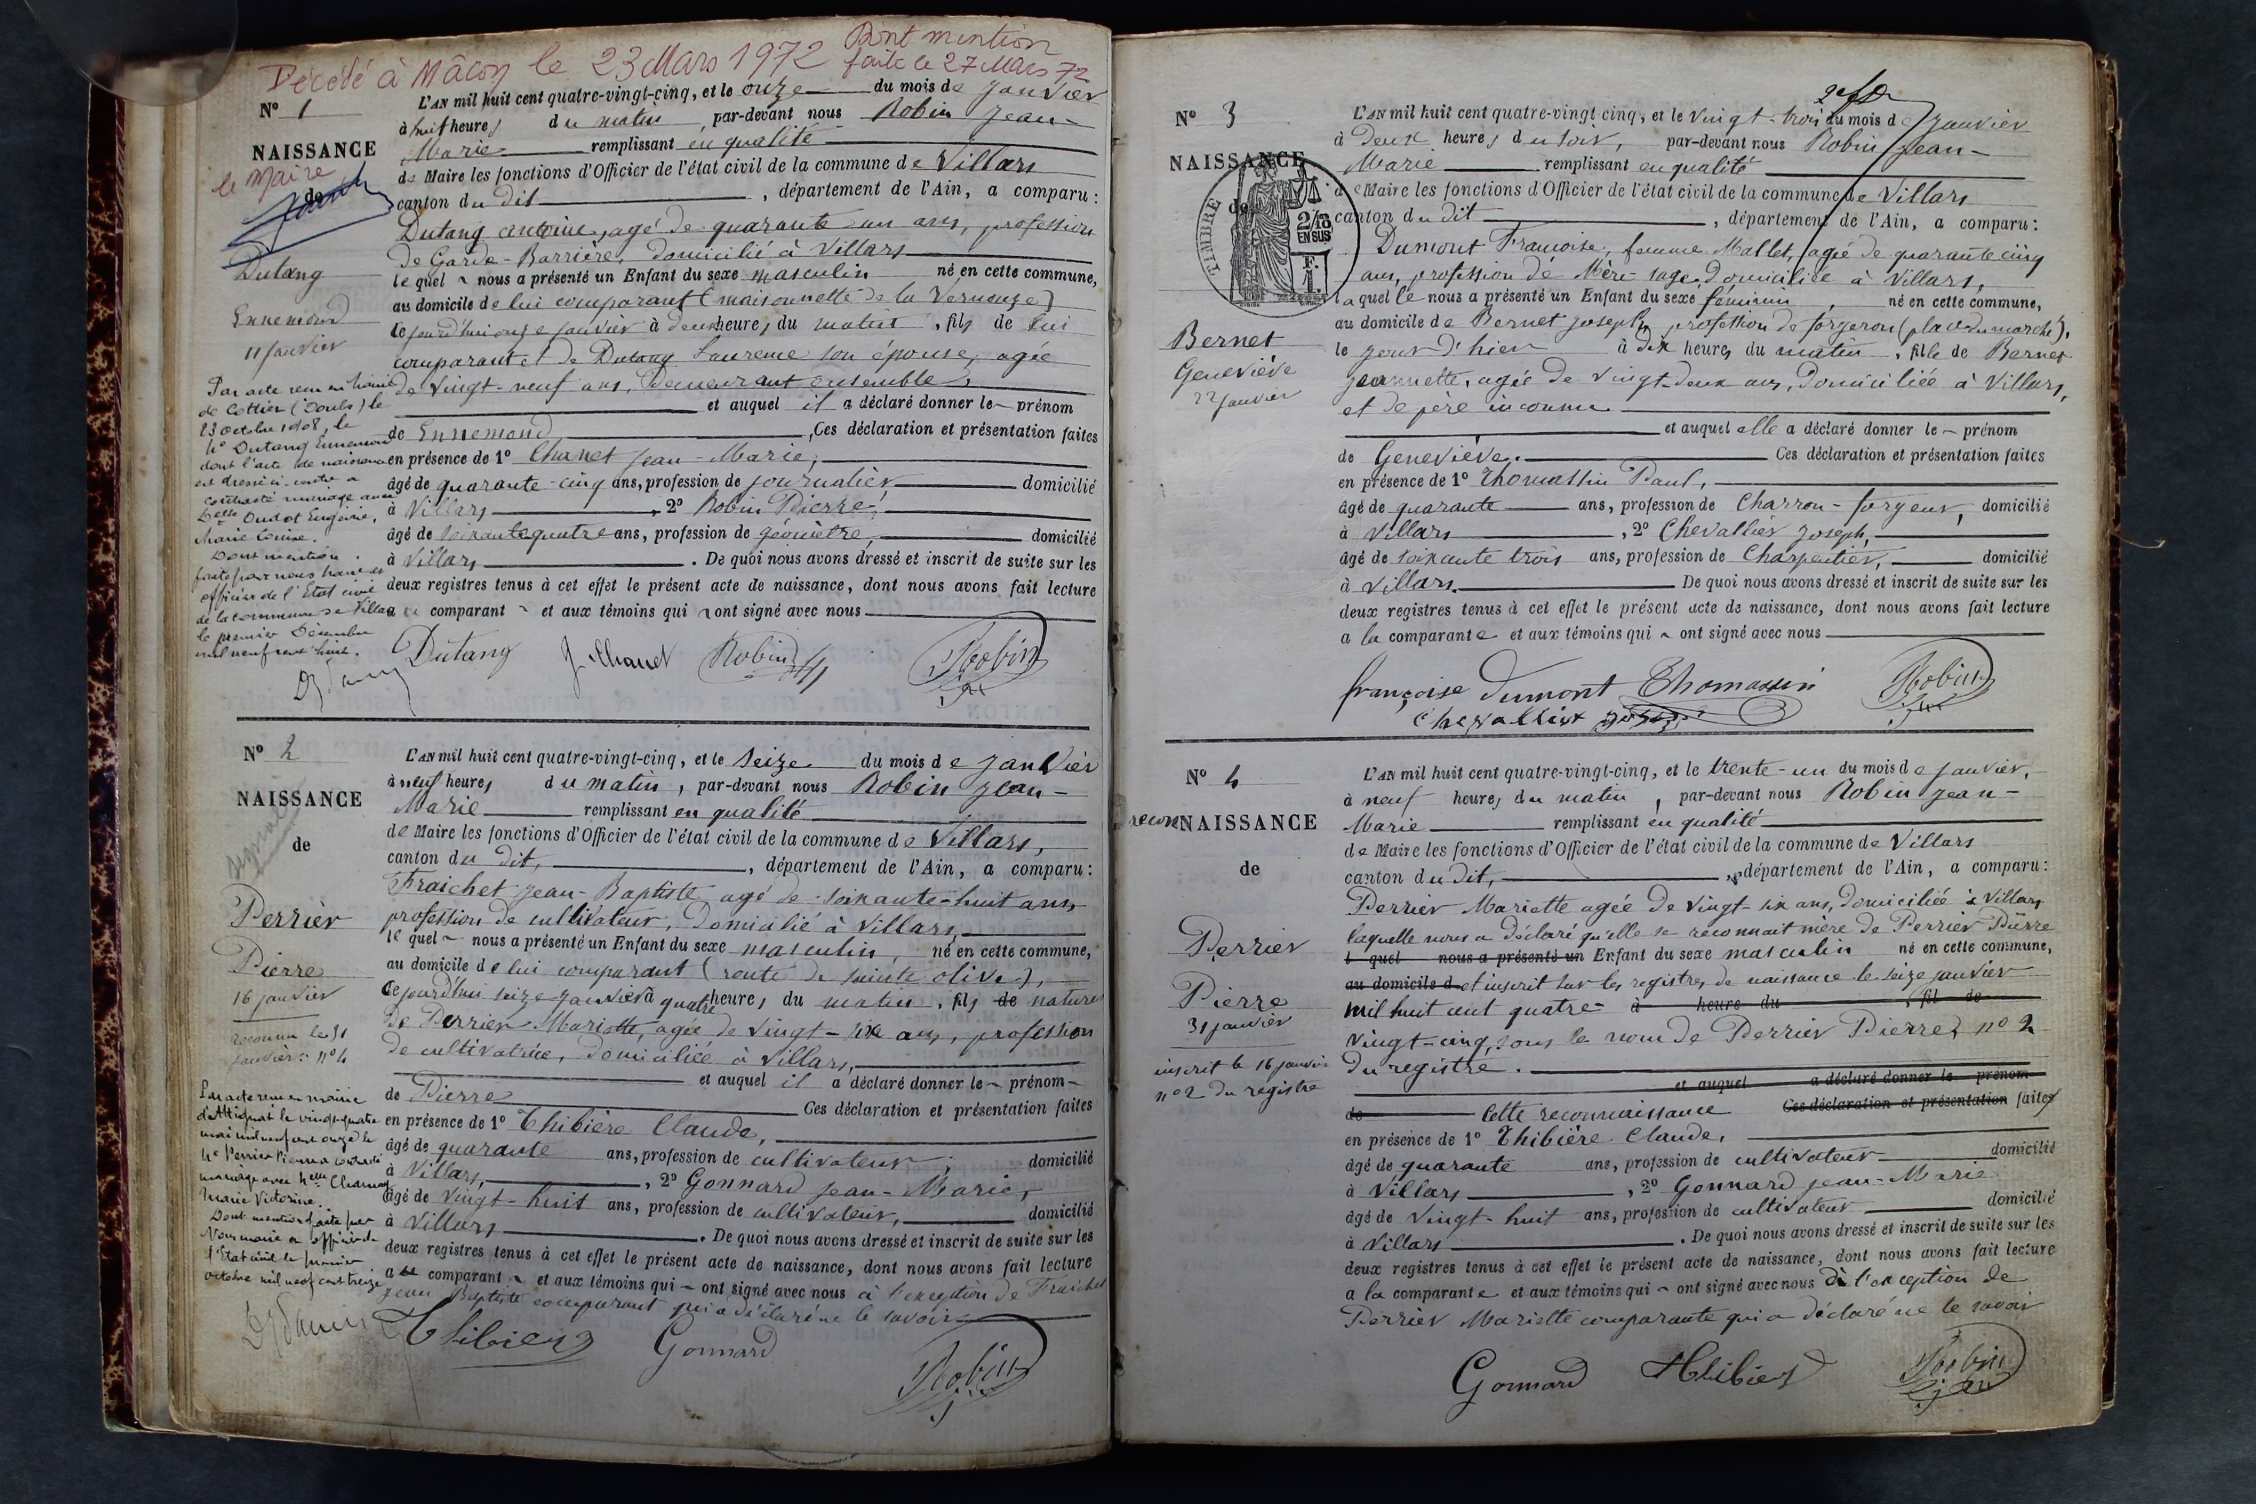 Décédé à Mâcon le 23 Mars 1972 Dont mention
faite le 27 Mars 72
N° 1
NAISSANCE
le Maire
de
Dutang
Ennemond
11 janvier
Par acte reçu en mairie
de Cottier (Doubs) le
23 octobre 1908, le
Sr Dutang Ennemond
dont l'acte de naissance
est dressé ci-contre a
contracté mariage avec
Delle Oudot Eugénie,
Marie Louise.
Dont mention
faite par nous maire et
officier de l'Etat civil
de la commune de Villars
le premier Décembre
mil neuf cent huit.
L'AN mil huit cent quatre-vingt-cinq, et le onze du mois de janvier
à huit heures du matin, par-devant nous Robin Jean-
Marie remplissant en qualité
de Maire les fonctions d'Officier de l'état civil de la commune de Villars
canton du dit, département de l'Ain, a comparu:
Dutang Antoine, agé de quarante un ans, profession
de Garde-Barrière, domicilié à Villars
lequel nous a présenté un Enfant du sexe masculin né en cette commune,
au domicile de lui comparant (maisonnette de la Vernouze)
ce jourd'hui onze janvier à deux heures du matin, fils de lui
comparant et de Dutang Laurence son épouse, agée
de vingt-neuf ans, demeurant ensemble,
et auquel il a déclaré donner le prénom
de Ennemond, Ces déclaration et présentation faites
en présence de 1° Chanet Jean-Marie,
âgé de quarante-cinq ans, profession de journalier, domicilié
à Villars, 2° Robin Pierre,
âgé de soixante quatre ans, profession de géomètre, domicilié
à Villars. De quoi nous avons dressé et inscrit de suite sur les
deux registres tenus à cet effet le présent acte de naissance, dont nous avons fait lecture
a comparant et aux témoins qui ont signé avec nous
Dutang J. Chanet Robin Robin
N° 2
NAISSANCE
de
Perrier
Pierre
16 janvier
reconnu le 31
janvier: n° 4
Par acte reçu en mairie
d'Attignat le vingt-quatre
mai mil neuf cent onze le
Sr Perrier Pierre a contracté
mariage avec Delle Charnay
Marie Victorine.
Dont mention faite par
Nous maire et officier de
l'Etat civil le premier
octobre mil neuf cent treize
L'AN mil huit cent quatre-vingt-cinq, et le seize du mois de janvier
à neuf heures du matin, par-devant nous Robin Jean-
Marie remplissant en qualité
de Maire les fonctions d'Officier de l'état civil de la commune de Villars,
canton du dit, département de l'Ain, a comparu:
Fraichet Jean-Baptiste agé de soixante-huit ans,
profession de cultivateur, domicilié à Villars,
lequel nous a présenté un Enfant du sexe masculin, né en cette commune,
au domicile de lui comparant (route de sainte olive),
ce jourd'hui seize janvier à quatre heures du matin, fils de naturel
de Perrier Mariette, agée de vingt-six ans, profession
de cultivatrice, domiciliée à Villars,
et auquel il a déclaré donner le prénom
de Pierre Ces déclaration et présentation faites
en présence de 1° Thibière Claude,
âgé de quarante ans, profession de cultivateur, domicilié
à Villars, 2° Gonnard Jean-Marie,
âgé de vingt-huit ans, profession de cultivateur, domicilié
à Villars. De quoi nous avons dressé et inscrit de suite sur les
deux registres tenus à cet effet le présent acte de naissance, dont nous avons fait lecture
a comparant et aux témoins qui ont signé avec nous à l'exception de Fraichet
Jean Baptiste comparant qui a déclaré ne le savoir.
Thibière Gonnard Robin
N° 3
NAISSANCE
de
TIMBRE
2/10
EN SUS
F.
1.
Bernet
Geneviève
22 janvier
L'AN mil huit cent quatre-vingt cinq, et le vingt-trois du mois de janvier
à deux heures du soir, par-devant nous Robin Jean-
Marie remplissant en qualité
de Maire les fonctions d'Officier de l'état civil de la commune de Villars
canton du dit, département de l'Ain, a comparu:
Dumont Françoise, femme Mallet, agée de quarante cinq
ans, profession de Mère-sage domiciliée à Villars,
laquelle nous a présenté un Enfant du sexe féminin, né en cette commune,
au domicile de Bernet Joseph, profession de forgeron (place du marché),
le jour d'hier à dix heures du matin, fille de Bernet
Jeannette, agée de vingt-deux ans, domiciliée à Villars,
et de père inconnu
et auquel elle a déclaré donner le prénom
de Geneviève. Ces déclaration et présentation faites
en présence de 1° Thomassin Paul,
âgé de quarante ans, profession de Charron-forgeur, domicilié
à Villars, 2° Chevallier Joseph,
âgé de soixante trois ans, profession de Charpentier, domicilié
à Villars. De quoi nous avons dressé et inscrit de suite sur les
deux registres tenus à cet effet le présent acte de naissance, dont nous avons fait lecture
a la comparante et aux témoins qui ont signé avec nous
françoise dumont Thomassin Robin
Chevallier
N° 4
recon NAISSANCE
de
Perrier
Pierre
31 janvier
inscrit le 16 janvier
n° 2 du registre
L'AN mil huit cent quatre-vingt-cinq, et le trente-un du mois de janvier,
à neuf heures du matin, par-devant nous Robin Jean-
Marie remplissant en qualité
de Maire les fonctions d'Officier de l'état civil de la commune de Villars
canton du dit, département de l'Ain, a comparu:
Perrier Mariette agée de vingt-six ans, domiciliée à Villars
laquelle nous a déclaré qu'elle se reconnait mère de Perrier Pierre
l quel nous a présenté un Enfant du sexe masculin né en cette commune,
au domicile d et inscrit sur les registres de naissance le seize janvier
mil huit cent quatre- à heure du fil de
vingt-cinq, sous le nom de Perrier Pierre, n° 2
du registre.
et auquel a déclaré donner le prénom
de Cette reconnaissance Ces déclaration et présentation faites
en présence de 1° Thibière Claude,
âgé de quarante ans, profession de cultivateur domicilié
à Villars, 2° Gonnard Jean-Marie
âgé de vingt-huit ans, profession de cultivateur domicilié
à Villars. De quoi nous avons dressé et inscrit de suite sur les
deux registres tenus à cet effet le présent acte de naissance, dont nous avons fait lecture
a la comparante et aux témoins qui ont signé avec nous à l'exception de
Perrier Mariette comparante qui a déclaré ne le savoir
Gonnard Thibière Robin